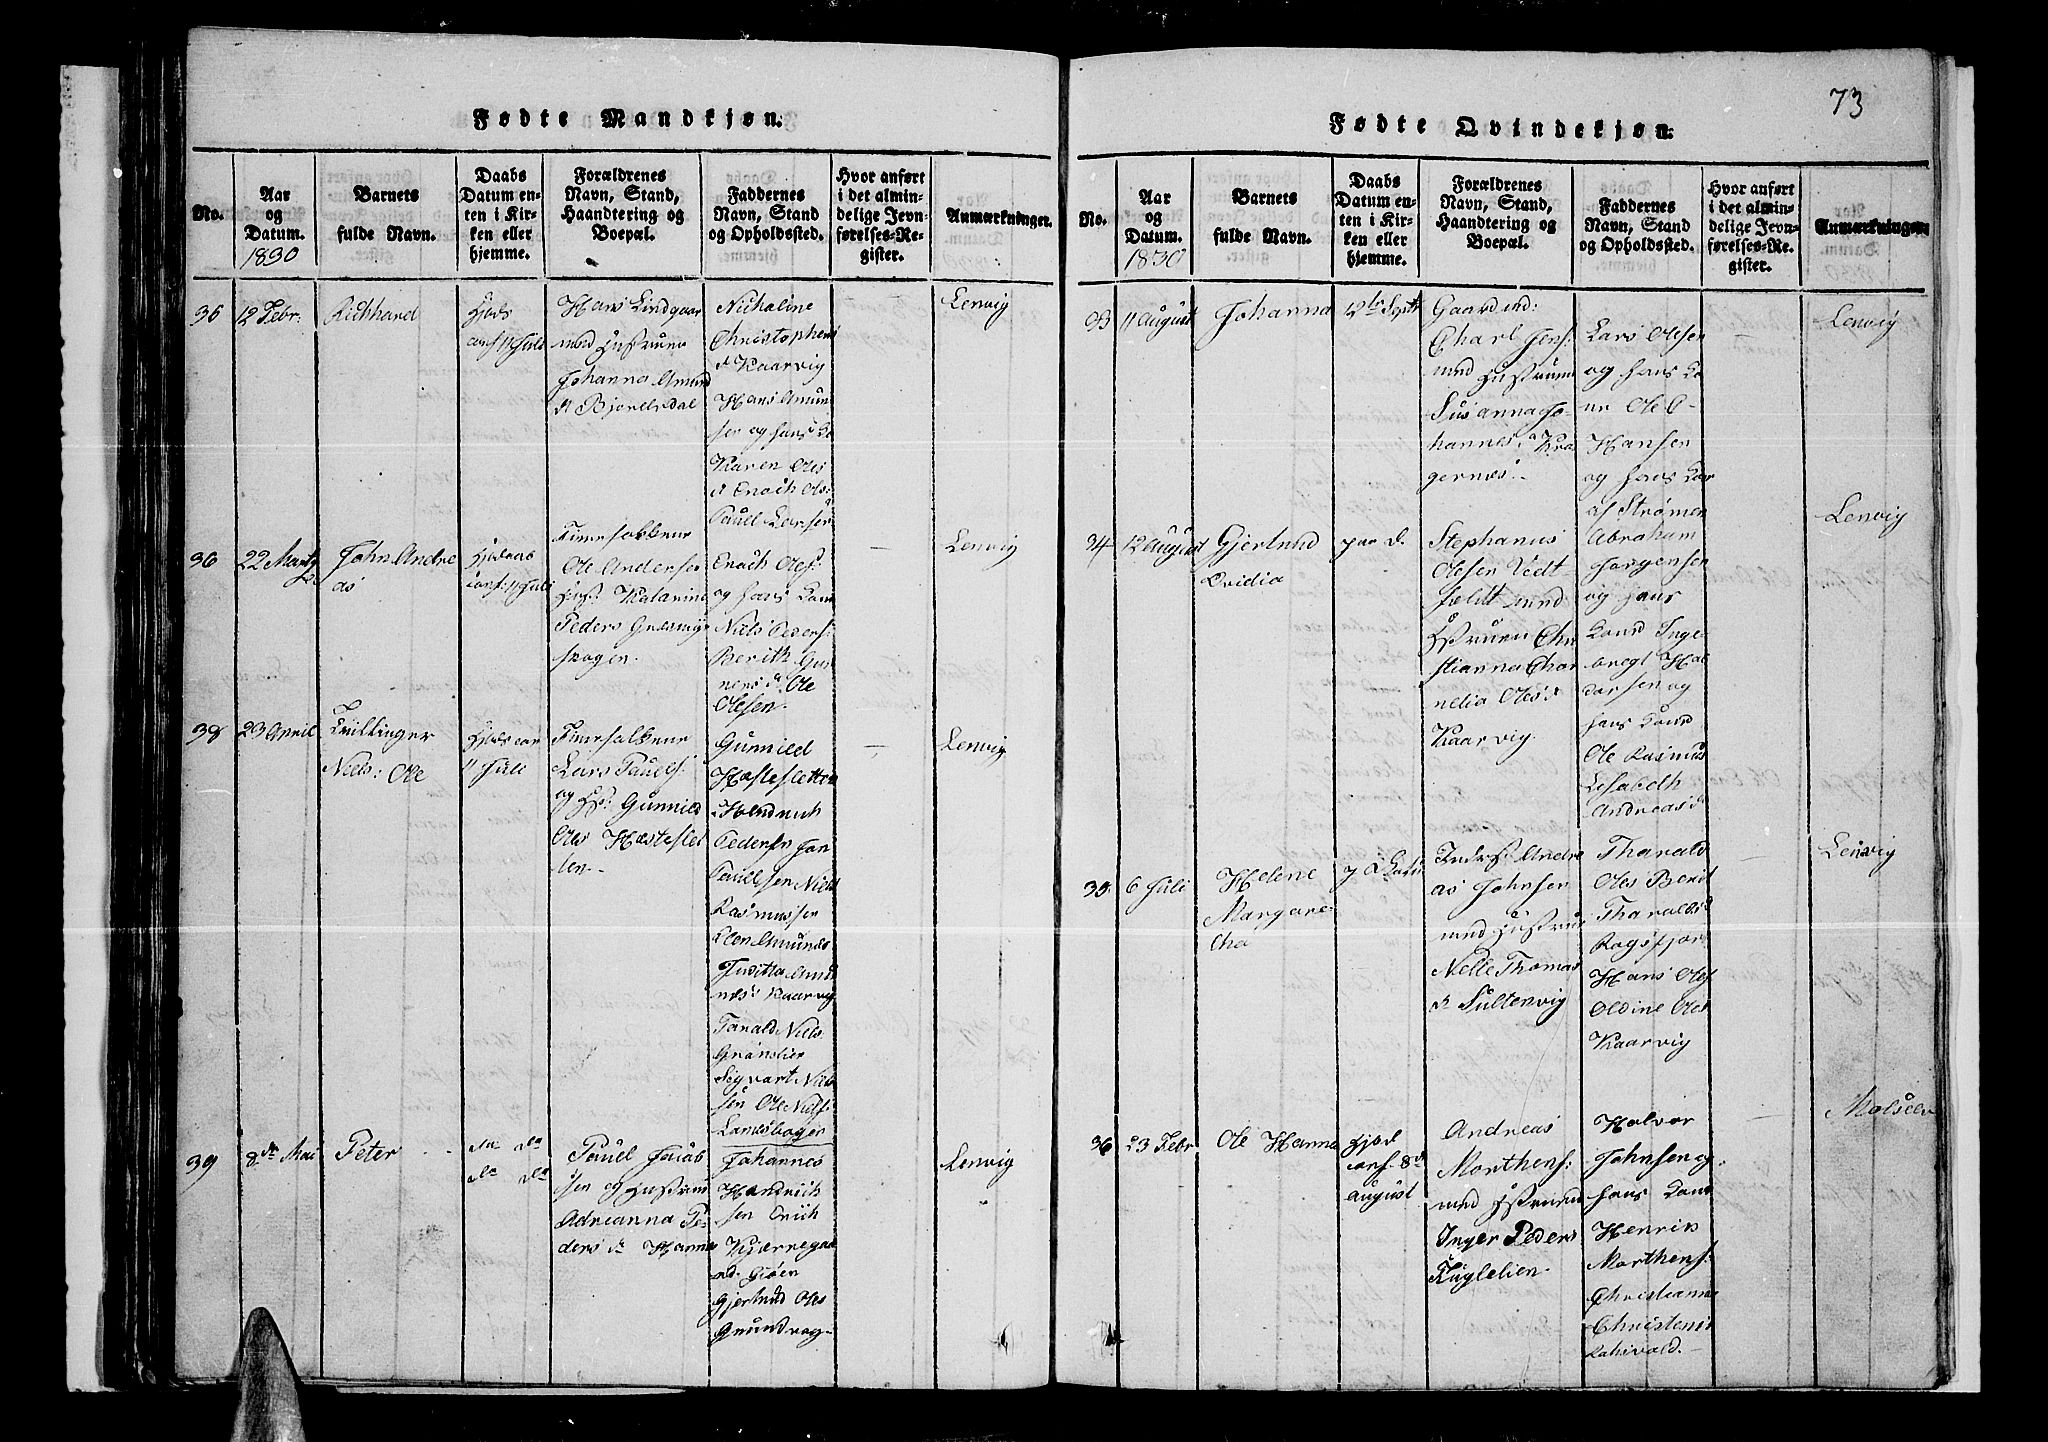 73
Fødte Mandkjøn.
No.
Aar
og
Datum.
1830
Barnets
fulde Navn.
Daabs
Datum en-
ten i Kir-
ken eller
hjemme.
Forældrenes
Navn, Stand,
Haandtering og
Boepæl.
Faddernes
Navn, Stand
og Opholdssted.
Hvor anført
i det almin-
delige Jevn-
førelses-Re-
gister.
Anmærkninger.
36
12 Febr:
Richhard
conf 11 Juli
Hans Lindgaar
med Hustrue
Johanna Amund
Nicholine
Christophers
d Kaarvig
Hans Amun-
sen og hans Ko
Karen Ols
d Enoch Ols:
Pauel Larsen
Lenvig
36
22 Marty
John Andre
as
conf: 11 Juli
Ole Andersen
Hust: Katarina
Peders
skogen.
Enoch Oles:
og hans Kone
Niels Peders:
Berith Gun
ners d Ole
Olesen.
Lenvig
38
23 April
Tvillinger
Niels: Ole
11 Juli
Lars Pauels:
og H: Gunnild
Oles Hæsteslet
ten.
Gunnild
Hæstesletten
Hendrich
Pedersen Jon
Paulsen Niels
Rasmussen
Elen Amunds
Kaarvig
Tarald Niels
Grønslier
Sigvart Niel
sen Ole Niels:
Lenvig
39
8de Mai
Peter
do do
do do
Pauel Jacob
sen og Hustrue
Adrianna Pe-
ders d Hannes
Johannes
Hendrich
sen Erich
Kjærregaa
Gjertrud Oles
Grundvog
Lenvig
Fødte Qvindekjøn.
No.
Aar
og
Datum.
1830
Barnets
fulde Navn.
Daabs
Datum en-
ten i Kir-
ken eller
hjemme.
Forældrenes
Navn, Stand,
Haandtering og
Boepæl.
Faddernes
Navn, Stand
og Opholdssted.
Hvor anført
i det almin-
delige Jevn-
førelses-Re-
gister.
Anmærkninger.
33
11 August
Johanna
12te Septb
Gaardmd:
Charl Jens:
med Hustrue
Susanna Jo-
hannes d Kra
gernæs.
Lars Olsen
og hans Ko
ne Ole O-
Hansen
og hans Kone
af Strømen
Lenvig
34
12 August
Gjertrud
Ovidia
Stephanus
Olesen Vedt-
feldt med
Hustruen Chri
stianna Chor
nelia Oles d
Kaarvig.
Abraham
Jørgensen
og hans
Kone Inge-
bregt Hal
dorsen og
hans Kone
Ole Rasmus
Lisabeth
Andreas d
Lenvig
35
6 Juli
Helene
Margare-
tha
Andre
as Johnsen
med Hustrue
Nelle Thomas
d Sultenvig
Tharald
Oles Berit
Tharalds d
Rogsfjor
Hans Oles
Oldine Oles
Kaarvig
Lenvig
36
23 Febr
Ole Hanna
conf. 8d
August
Andreas
Morthens:
med Hustruen
Inger Peders
Fuglelien.
Halvor
Johnsen og
hans Kone
Henrik
Morthens:
Christianna
Christens
Malselv